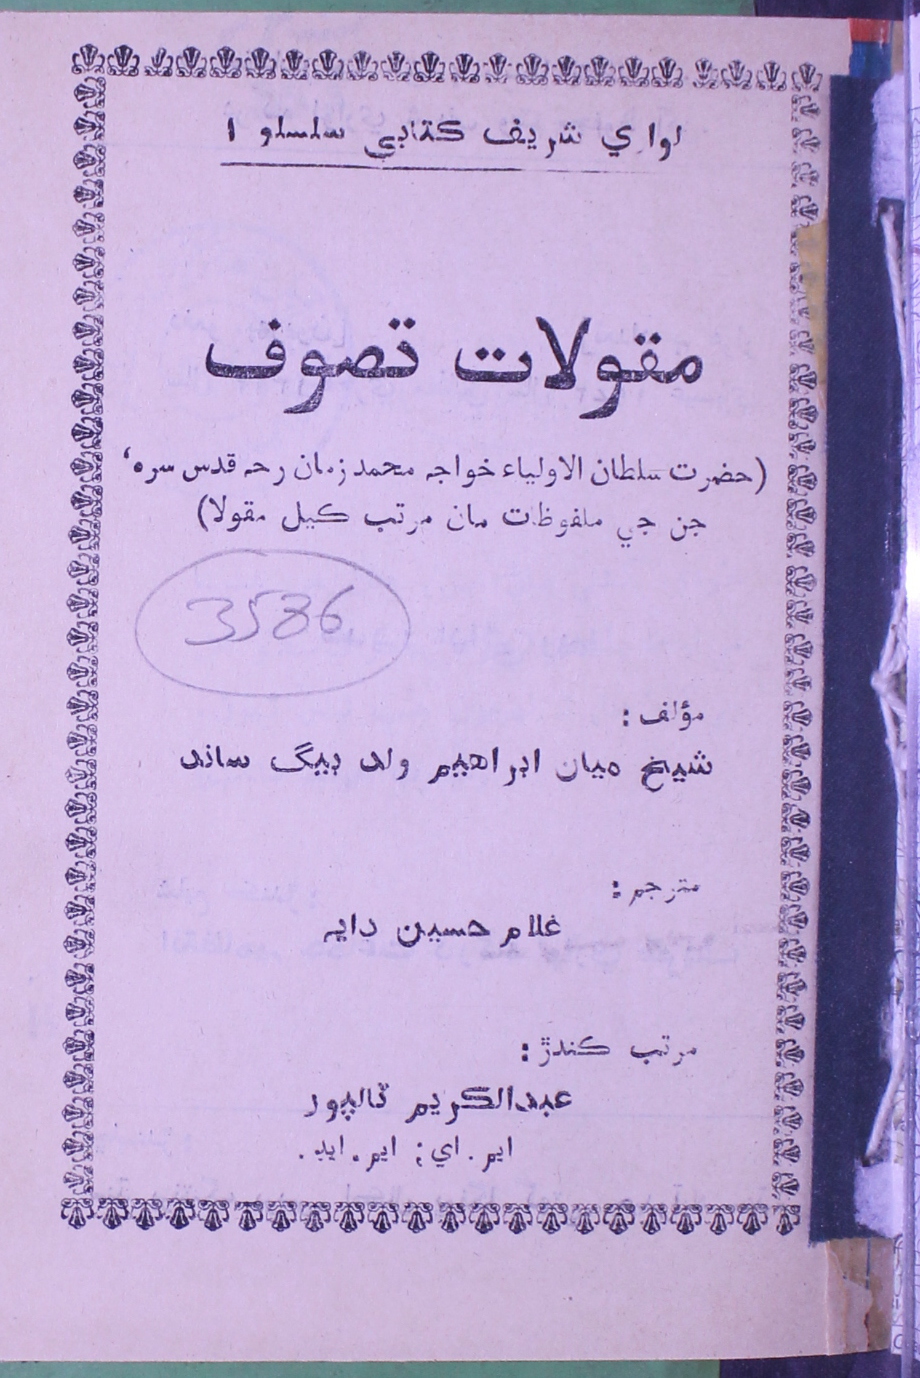 لواري شريف ڪتابي سلسلو ١
مقولات تصوف
(حضرت سلطان الاولياء خواجه محمد زمان رحه قدس سره‘
جن جي ملفوظات مان مرتب ڪيل مقولا)
3586
مؤلف:
شيخ ميان ابراهيم ولد بيگ ساند
مترجم:
غلام حسين دايہ
مرتب ڪندڙ:
عبدالڪريم ٽالپور
ايم. اي; ايم. ايڊ.